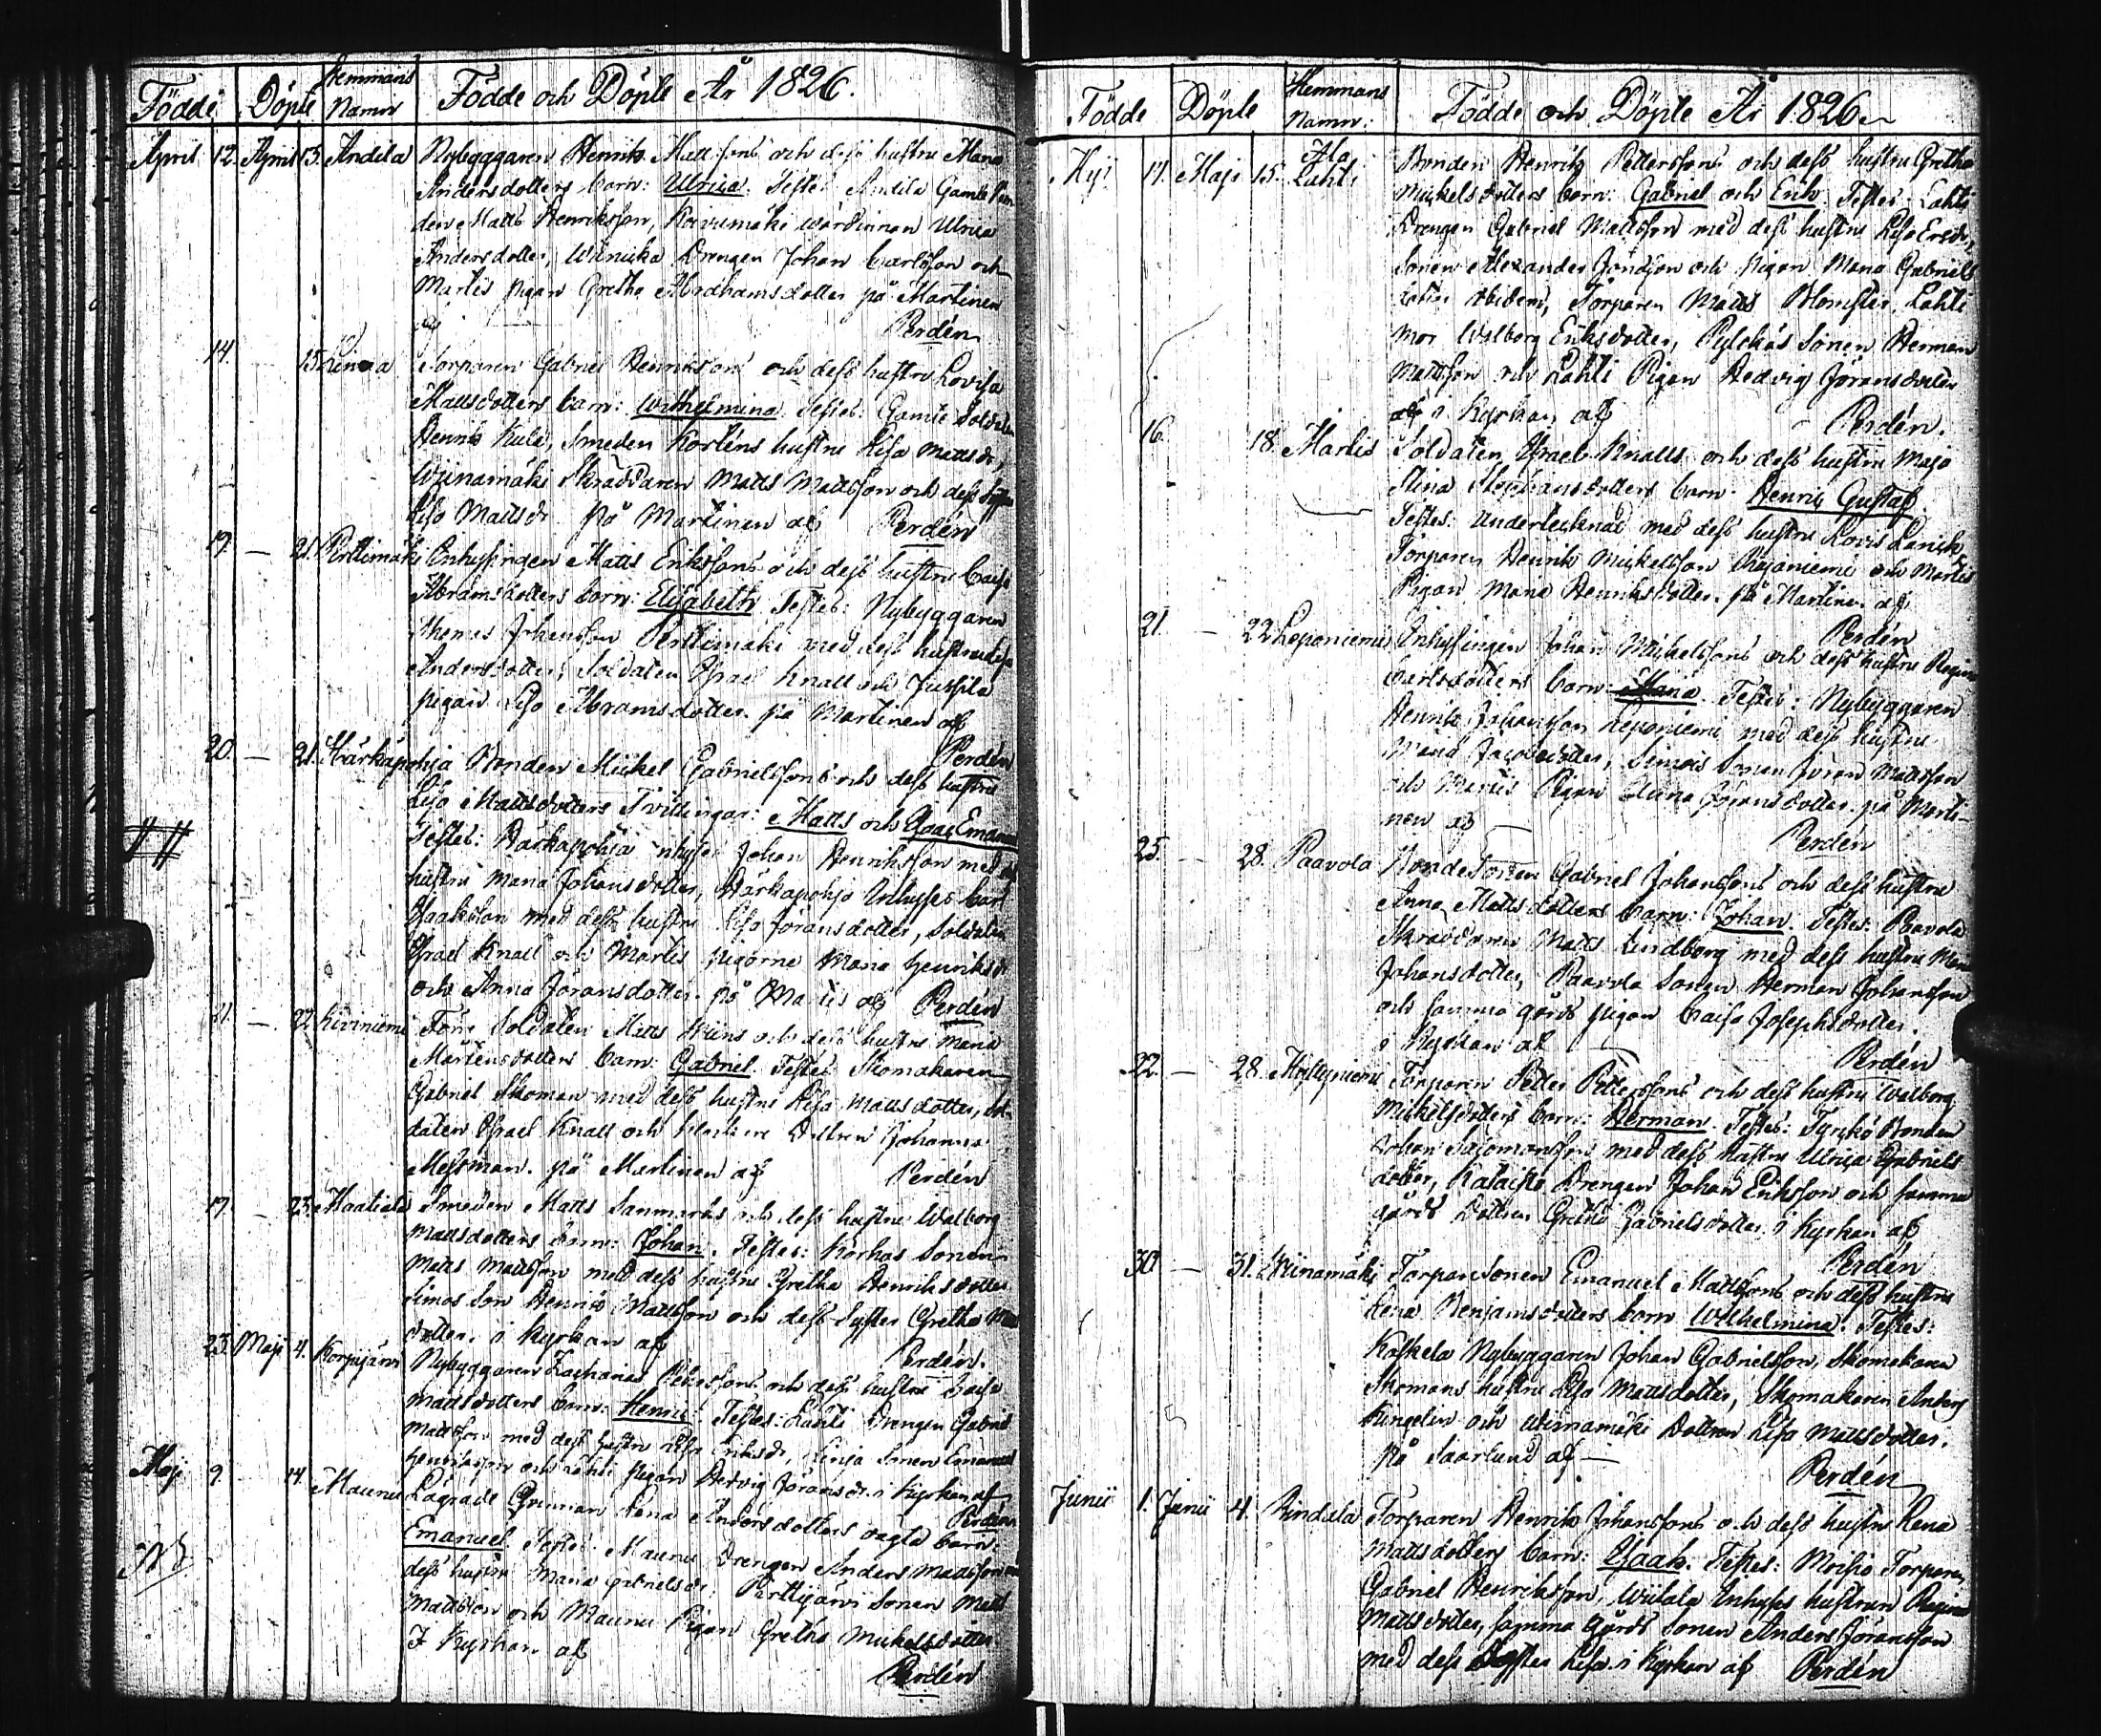 Födde Döpte Hemmans Namn Födde och Döpte År 1826.
April 12. April 13. Andila Nybyggaren Henrik Mattsons och dess hustru Maria
Andersdotters barn: Ulrica. Testes: Andila Gamle
den Matts Henriksson, Koivumäki wärdinnan Ulrica
Andersdotter, Drengen Johan Carlsson och
Martis pigan Gretha Abrahamsdotter på Martinen
af Perdén
14. 15 Torparen Gabriel Henriksons och dess hustru Lovisa
Mattsdotters barn: Wilhelmina. Testes: Gamle Soldaten
Henrik Kula, Smeden Korténs hustru Lisa Mattsdr,
Wiinamäki Skräddaren Matts Mattsson och dess
Lisa Mattsdr. på Martinen af Perdén
19. — 21. Perttimäki Inhysingen Matts Erikssons och dess hustru Caisa
Abramsdotters barn: Elisabeth. Testes: Nybyggaren
Thomas Johansson Perttimäki med dess hustru Lisa
Andersdotter, Soldaten Israel Knall och Jussila
pigan Lisa Abramsdotter på Martinen af
Perdén
20. — 21. Härkäpohja Bonden Mickel Gabrielssons och dess hustru
Lisa Mattsdotters Tvillingar: Matts och Isaac Emanuel
Testes: Härkäpohja inhyses Johan Henriksson med dess
hustru Maria Johansdotter, Härkäpohja Inhyses Carl
Isaaksson med dess hustru Lisa Jöransdotter, Soldaten
Israel Knall och Martis pigorne Maria Henriksdr
och Anna Jöransdotter på Martis af Perdén
21. — 22. Kiviniemi Förre Soldaten Matts och dess hustru Maria
Mårtensdotters barn: Gabriel. Testes: Skomakaren
Gabriel Skoman med dess hustru Lisa Mattsdotter, Sol-
daten Israel Knall och Dottren Johanna
Mestman. på Martinen af Perdén
17. — 23. Haatiala Smeden Matts Sanmarks och dess hustru Walborg
Mattsdotters barn: Johan. Testes: Korhos Sonen
Matts Mattsson med dess hustru Gretha Henriksdotter
Simos Son Henrik Mattsson och dess Syster Gretha Matts
dotter. i Kyrkan af Perdén.
23. Maji 4. Korpijärvi Nybyggaren Zacharias och dess hustru Caisa
Mattsdotters barn: Henric. Testes: Lahti Drengen Gabriel
Mattsson med dess hustru Lisa Eriksdr, Sonen Emanuel
Henriksson och Lahti pigan Hedvig Jöransdr. i Kyrkan af
Perdén
Maji 9. 14. Maunu Lägrade Qvinnan Lena Andersdotters oägta barn:
Emanuel. Testes: Maunu Drengen Anders Mattsson med
dess hustru Maria Gabrielsdr. Perttijärvi Sonen Matts
Mattsson och Maunu Pigan Gretha Mickelsdotter
I Kyrkan af
Perdén
Födde Döpte Hemmans Namn: Födde och Döpte År 1826.
Maji 11. Maji 15. Ala Lahti Bonden Henrik Pettersons och dess hustru Gretha
Mickelsdotters barn: Gabriel och Erik. Testes: Lahti
Drengen Gabriel Mattsson med dess hustru Lisa Eriksdr,
Sonen Alexander Jöransson och pigan Maria Gabriels
dotter ibidem, Torparen Matts Blomster, Lahti
mor Walborg Eriksdotter, Pylckäs Sonen Herman
Mattsson och Lahti Pigan Hedvig Jöransdotter
i Kyrkan af Perdén.
16. 18. Martis Soldaten Israel Knalls och dess hustru Maja
Stina Stephansdotters barn: Henric Gustaf.
Testes: Undertecknad med dess hustru Lovis
Torparen Henrik Mickelsson Kujaniemi och Martis
Pigan Maria Henriksdotter. på Martinen af
Perdén
21. — 22. Leponiemi Inhysingen Johan Mickelssons och dess hustru Regina
Carlsdotters barn: Maria. Testes: Nybyggaren
Henrik Johansson Leponiemi med dess hustru
Maria Jacobsdotter, Simois Sonen Jöran Mattsson
och Martis Pigan Anna Jöransdotter på Marti-
nen af Perdén
25. — 28. Paavola Bondesonen Gabriel Johanssons och dess hustru
Anna Mattsdotters barn: Johan. Testes: Paavola
Skräddaren Matts Lindborg med dess hustru Maria
Johansdotter, Paavola Sonen Herman Johansson
och samma gårds pigan Caisa Josephsdotter.
i Kyrkan af Perdén
22. — 28. Torparen Petter Petterssons och dess hustru Walborg
Mickelsdotters barn: Herman. Testes: Tyrckö Bonden
Johan Salomonsson med dess hustru Ulrica Gabriels
dotter, Drengen Johan Eriksson och samma
gårds Dottren Gretha Gabrielsdotter. i Kyrkan af
Perdén
30 — 31. Wiinamäki Torparsonen Emanuel Mattssons och dess hustru
Lena Benjamsdotters barn Wilhelmina. Testes:
Kaskela Nybyggaren Johan Gabrielsson, Skomakaren
Skomans hustru Lisa Mattsdotter, Skomakaren Anders
Kungelin och Wiinamäki Dottren Lisa Mattsdotter.
På Saarlund af —
Perdén
Junii 1. Junii 4. Rindala Torparen Henrik Johanssons och dess hustru Lena
Mattsdotters barn: Isaak. Testes: Moisio Torparen
Gabriel Henriksson, Wiitala Inhyses hustrun Regina
Mattsdotter, samma gårds Sonen Anders Jöransson
med dess Syster Lisa. i Kyrkan af Perdén